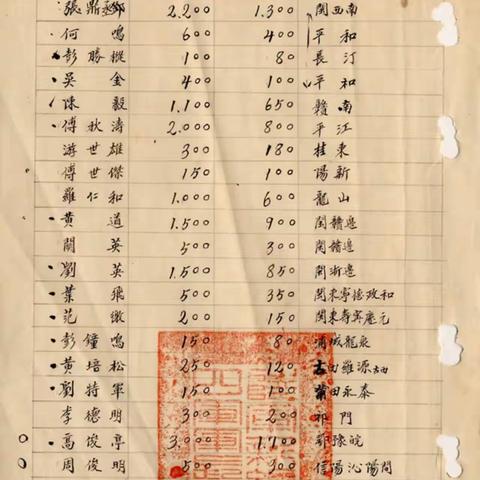 張鼎丞 2.200 1.300 閩西南
何鳴 600 400 平和
彭勝樅 100 80 長汀
吳金 400 100 平和
陳毅 1.100 650 贛南
傅秋濤 2.000 800 平江
游世雄 300 180 桂東
傅世傑 150 100 陽新
羅仁和 1.000 600 龍山
黃道 1.500 900 閩贛邊
關英 500 300 閩贛邊
劉英 1.500 850 閩浙邊
葉飛 500 350 閩東寧德政和
范 200 150 閩東壽寧慶元
彭鐘鳴 150 80 浦城龍泉
黃培松 250 120 古田羅源
劉特軍 150 100 莆田永泰
李德明 300 200 祁門
高俊亭 3.000 1.100 鄂豫皖
周俊明 500 300 信陽沁陽間